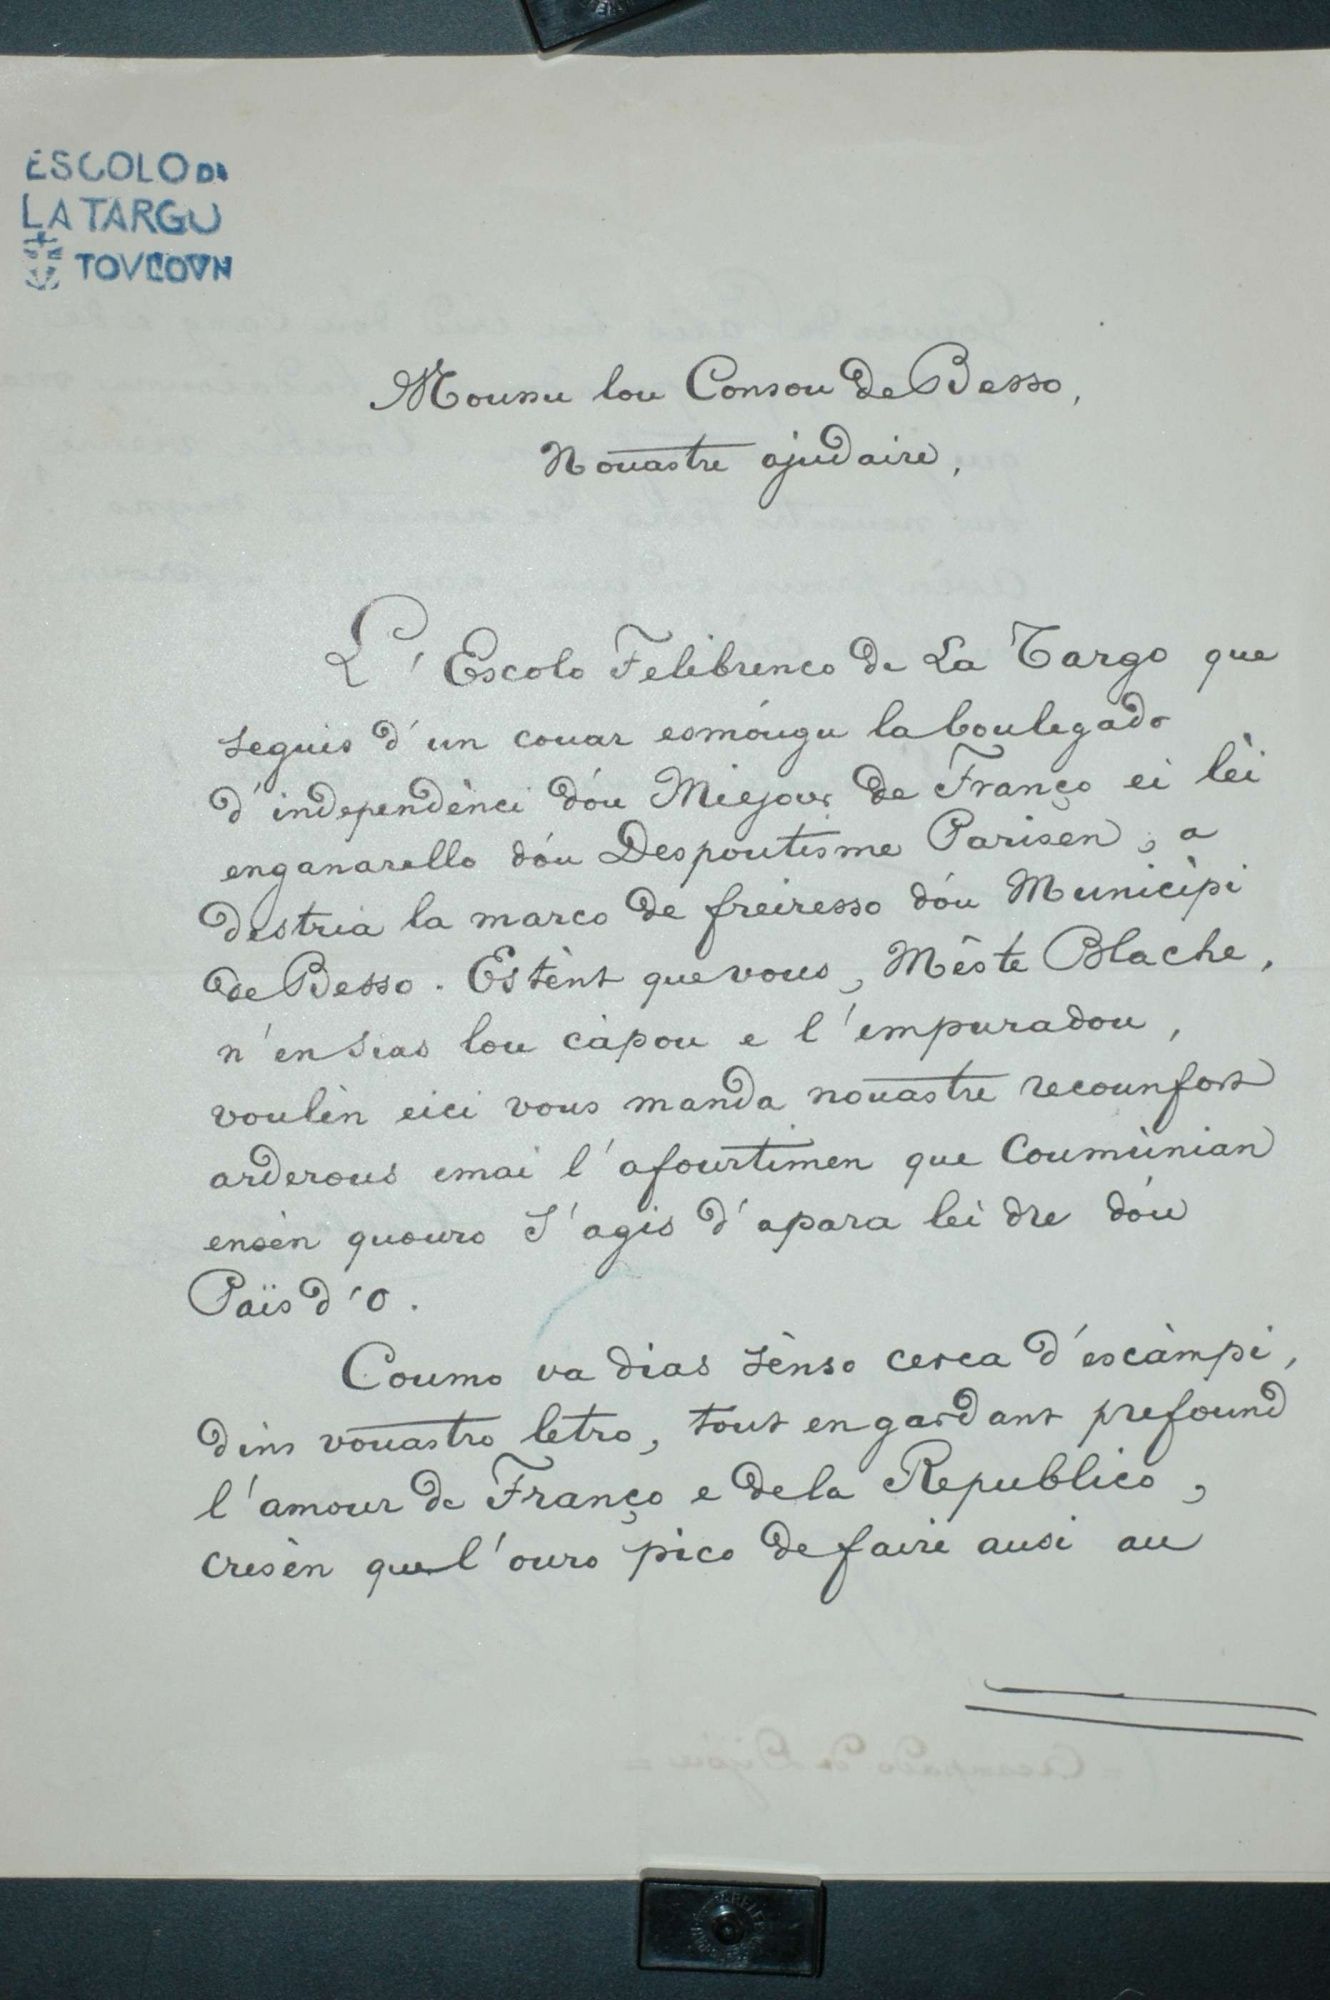 ESCOLO DE
LA TARGO
TOVLOVN
Moussu lou Conсou de Besso,
Nouastre ajudaire,
L'Escolo Felibrenco de La Targo que
seguis d'un couar esmóugu la boulegado
d'independènci dóu Miejour de Franço ei lèi
enganarello dóu Despoutisme Parisen, a
destria la marco de freiresso dóu Municìpi
de Besso. Estènt que vous, Mèste Blache,
n'en sias lou càpou e l'empuradou,
voulèn eici vous manda nouastre recounfort
arderous emai l'afourtimen que Coumùnian
ensèn quouro s'agis d'apara lei dre dóu
Païs d'O.
Coumo va dias sènso cerca d'escàmpi,
dins vouastro letro, tout en gardant prefound
l'amour de Franço e de la Republico,
cresèn que l'ouro pico de faire ausi au